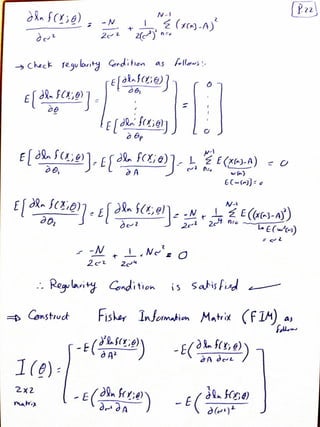 P22
∂ln f(x;θ)/∂σ² = -N/2σ² + 1/2(σ²)² Σ_{n=0}^{N-1} (x(n)-A)²
→ Check regularity Condition as follows:-
E[∂ln f(x;θ)/∂θ] = [E[∂ln f(x;θ)/∂θ₁] ⋮ E[∂ln f(x;θ)/∂θp]] = [0 ⋮ 0]
E[∂ln f(x;θ)/∂θ₁] = E[∂ln f(x;θ)/∂A] = 1/σ² Σ_{n=0}^{N-1} E(x(n)-A) = 0
w(n)
E(w(n)) = 0
E[∂ln f(x;θ)/∂θ₂] = E[∂ln f(x;θ)/∂σ²] = -N/2σ² + 1/2σ⁴ Σ_{n=0}^{N-1} E((x(n)-A)²)
↳ E(w²(n)) = σ²
= -N/2σ² + 1/2σ⁴ · Nσ² = 0
∴ Regularity Condition is satisfied
⇒ Construct Fisher Information Matrix (FIM) as follows
I(θ) = [-E(∂²ln f(x;θ)/∂A²) -E(∂²ln f(x;θ)/∂A ∂σ²)
2x2 matrix
-E(∂²ln f(x;θ)/∂σ² ∂A) -E(∂²ln f(x;θ)/∂(σ²)²)]